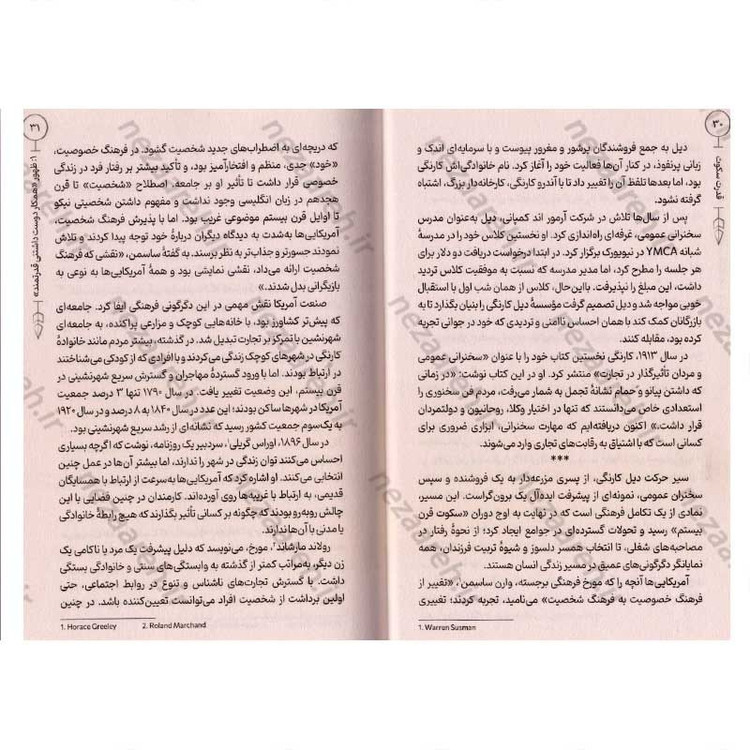 ۳۰
قدرت سکوت
دیل به جمع فروشندگان پرشور و مغرور پیوست و با سرمایه‌ای اندک و
زبانی پرنفوذ، در کنار آن‌ها فعالیت خود را آغاز کرد. نام خانوادگی‌اش کارنگی
بود، اما بعدها تلفظ آن را تغییر داد تا با آندرو کارنگی، کارخانه‌دار بزرگ، اشتباه
گرفته نشود.
پس از سال‌ها تلاش در شرکت آرمور اند کمپانی، دیل به‌عنوان مدرس
سخنرانی عمومی، غرفه‌ای راه‌اندازی کرد. او نخستین کلاس خود را در مدرسهٔ
شبانه YMCA در نیویورک برگزار کرد. در ابتدا درخواست دریافت دو دلار برای
هر جلسه را مطرح کرد، اما مدیر مدرسه که نسبت به موفقیت کلاس تردید
داشت، این مبلغ را نپذیرفت. بااین‌حال، کلاس از همان شب اول با استقبال
خوبی مواجه شد و دیل تصمیم گرفت مؤسسهٔ دیل کارنگی را بنیان بگذارد تا به
بازرگانان کمک کند با همان احساس ناامنی و تردیدی که خود در جوانی تجربه
کرده بود، مقابله کنند.
در سال ۱۹۱۳، کارنگی نخستین کتاب خود را با عنوان «سخنرانی عمومی
و مردان تأثیرگذار در تجارت» منتشر کرد. او در این کتاب نوشت: «در زمانی
که داشتن پیانو و حمام نشانهٔ تجمل به شمار می‌رفت، مردم فن سخنوری را
استعدادی خاص می‌دانستند که تنها در اختیار وکلا، روحانیون و دولتمردان
قرار داشت.» اکنون دریافته‌ایم که مهارت سخنرانی، ابزاری ضروری برای
کسانی است که با اشتیاق به رقابت‌های تجاری وارد می‌شوند.
***
سیر حرکت دیل کارنگی، از پسری مزرعه‌دار به یک فروشنده و سپس
سخنران عمومی، نمونه‌ای از پیشرفت ایده‌آل یک برون‌گراست. این مسیر،
نمادی از یک تکامل فرهنگی است که در نهایت به اوج دوران «سکوت قرن
بیستم» رسید و تحولات گسترده‌ای در جوامع ایجاد کرد؛ از نحوهٔ رفتار در
مصاحبه‌های شغلی، تا انتخاب همسر دلسوز و شیوهٔ تربیت فرزندان، همه
نمایانگر دگرگونی‌های عمیق در مسیر زندگی انسان هستند.
آمریکایی‌ها آنچه را که مورخ فرهنگی برجسته، وارن ساسمن، «تغییر از
فرهنگ خصوصیت به فرهنگ شخصیت» می‌نامید، تجربه کردند؛ تغییری
1. Warren Susman
۳۱
۱: ظهور «همکار دوست داشتنی قدرتمند»
که دریچه‌ای به اضطراب‌های جدید شخصیت گشود. در فرهنگ خصوصیت،
«خود» جدی، منظم و افتخارآمیز بود، و تأکید بیشتر بر رفتار فرد در زندگی
خصوصی قرار داشت تا تأثیر او بر جامعه. اصطلاح «شخصیت» تا قرن
هجدهم در زبان انگلیسی وجود نداشت و مفهوم داشتن شخصیتی نیکو
تا اوایل قرن بیستم موضوعی غریب بود. اما با پذیرش فرهنگ شخصیت،
آمریکایی‌ها به‌شدت به دیدگاه دیگران دربارهٔ خود توجه پیدا کردند و تلاش
نمودند جسورتر و جذاب‌تر به نظر برسند. به گفتهٔ ساسمن، «نقشی که فرهنگ
شخصیت ارائه می‌داد، نقشی نمایشی بود و همهٔ آمریکایی‌ها به نوعی به
بازیگرانی بدل شدند.»
صنعت آمریکا نقش مهمی در این دگرگونی فرهنگی ایفا کرد. جامعه‌ای
که پیش‌تر کشاورز بود، با خانه‌هایی کوچک و مزارعی پراکنده، به جامعه‌ای
شهرنشین با تمرکز بر تجارت تبدیل شد. در گذشته، بیشتر مردم مانند خانوادهٔ
کارنگی در شهرهای کوچک زندگی می‌کردند و با افرادی که از کودکی می‌شناختند
در ارتباط بودند. اما با ورود گستردهٔ مهاجران و گسترش سریع شهرنشینی در
قرن بیستم، این وضعیت تغییر یافت. در سال ۱۷۹۰ تنها ۳ درصد جمعیت
آمریکا در شهرها ساکن بودند؛ این عدد در سال ۱۸۴۰ به ۸ درصد و در سال ۱۹۲۰
به یک‌سوم جمعیت کشور رسید که نشانه‌ای از رشد سریع شهرنشینی بود.
در سال ۱۸۹۶، اوراس گریلی¹، سردبیر یک روزنامه، نوشت که اگرچه بسیاری
احساس می‌کنند توان زندگی در شهر را ندارند، اما بیشتر آن‌ها در عمل چنین
انتخابی می‌کنند. او اشاره کرد که آمریکایی‌ها به‌سرعت از ارتباط با همسایگان
قدیمی، به ارتباط با غریبه‌ها روی آورده‌اند. کارمندان در چنین فضایی با این
چالش روبه‌رو بودند که چگونه بر کسانی تأثیر بگذارند که هیچ رابطهٔ خانوادگی
یا مدنی با آن‌ها ندارند.
رولاند مارشاند²، مورخ، می‌نویسد که دلیل پیشرفت یک مرد یا ناکامی یک
زن دیگر، به‌مراتب کمتر از گذشته به وابستگی‌های سنتی و خانوادگی بستگی
داشت. با گسترش تجارت‌های ناشناس و تنوع در روابط اجتماعی، حتی
اولین برداشت از شخصیت افراد می‌توانست تعیین‌کننده باشد. در چنین
1. Horace Greeley 2. Roland Marchand